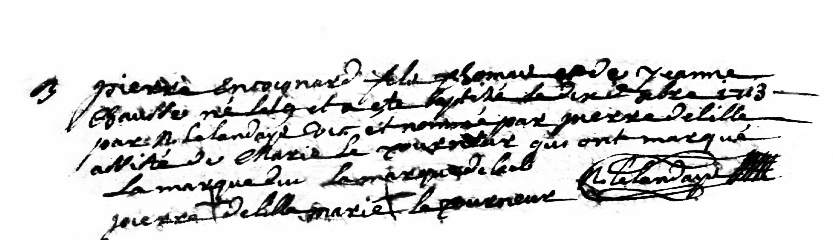 B pierre Encoignard fils Thomas et de Jeanne
Chausse né le et a esté baptisé le dix 1713
par N Lelandays vic et nommé par pierre delille
assisté de Marie le tourneur qui ont marqué
La marque dud la marque de lad
pierre delille marie le tourneur N Lelandays